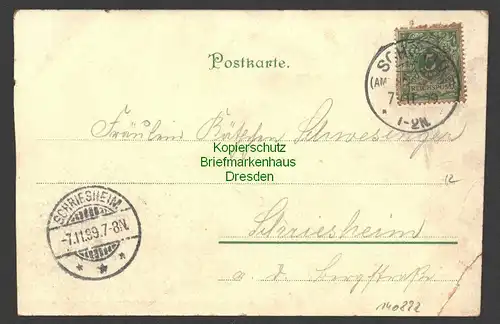 Postkarte.
REICHSPOST
1-2N.
Fräulein Käthchen Schwesinger
Kopierschutz
Briefmarkenhaus
Dresden
12
SCHRIESHEIM.
-7.11.99.7-8N.
Schriesheim
a. d. Bergstraße
140822